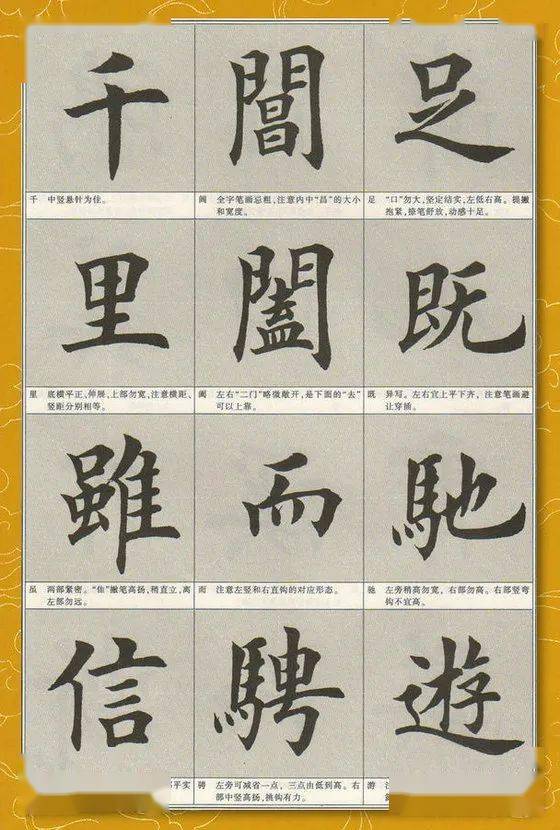 千
閶
足
千 中竖悬针为佳。
阊 全字笔画忌粗,注意内中“昌”的大小
和宽度。
足 “口”勿大,坚定结实,左低右高。提撇
抱紧,捺笔舒放,动感十足。
里
闔
既
里 底横平正、伸展,上部勿宽,注意横距、
竖距分别相等。
阖 左右“二门”略微敞开,是下面的“去”
可以上靠。
既 异写。左右宜上平下齐,注意笔画避
让穿插。
雖
而
馳
虽 两部紧密。“隹”撇笔高扬,稍直立,离
左部勿远。
而 注意左竖和右直钩的对应形态。
驰 左旁稍高勿宽,右部勿高。右部竖弯
钩不宜高。
信
騁
遊
平实
骋 左旁可减省一点,三点由低到高。右
部中竖高扬,挑钩有力。
游